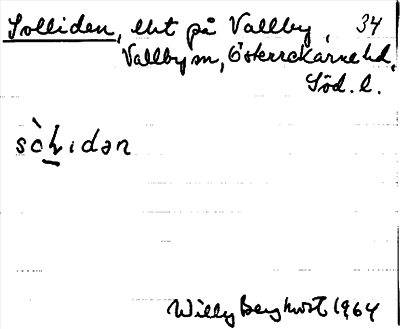 Solliden, lht på Vallby, 34
Vallby sn, Österrekarne hd,
Söd. l.
sòlidən
Willy Bergkvist 1964